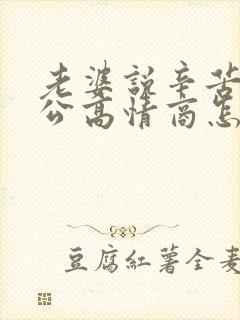 老婆説辛苦
公高情商怎
豆腐紅薯全麦